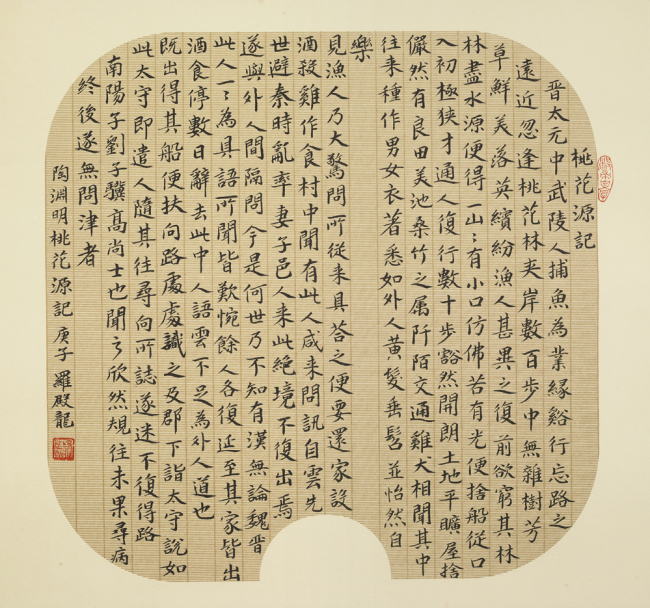 桃花源記
晋太元中武陵人捕魚為業緣谿行忘路之
遠近忽逢桃花林夹岸數百步中無雜樹芳
草鮮美落英繽紛漁人甚異之復前欲窮其林
林盡水源便得一山〻有小口仿佛若有光便捨船從口
入初極狹才通人復行數十步豁然開朗土地平曠屋捨
儼然有良田美池桑竹之属阡陌交通雞犬相聞其中
往来種作男女衣著悉如外人黄髮垂髫並怡然自
樂
見漁人乃大驚問所從来具荅之便要還家設
酒殺雞作食村中聞有此人咸来問訊自雲先
世避秦時亂率妻子邑人来此絶境不復出焉
遂與外人間隔問今是何世乃不知有漢無論魏晋
此人一〻為具語所聞皆歎惋餘人各復延至其家皆出
酒食停數日辭去此中人語雲不足為外人道也
既出得其船便扶向路處處識之及郡下詣太守說如
此太守即遣人隨其往尋向所誌遂迷不復得路
南陽子劉子驥高尚士也聞之欣然規往未果尋病
終後遂無問津者
陶淵明桃花源記庚子羅殿龍